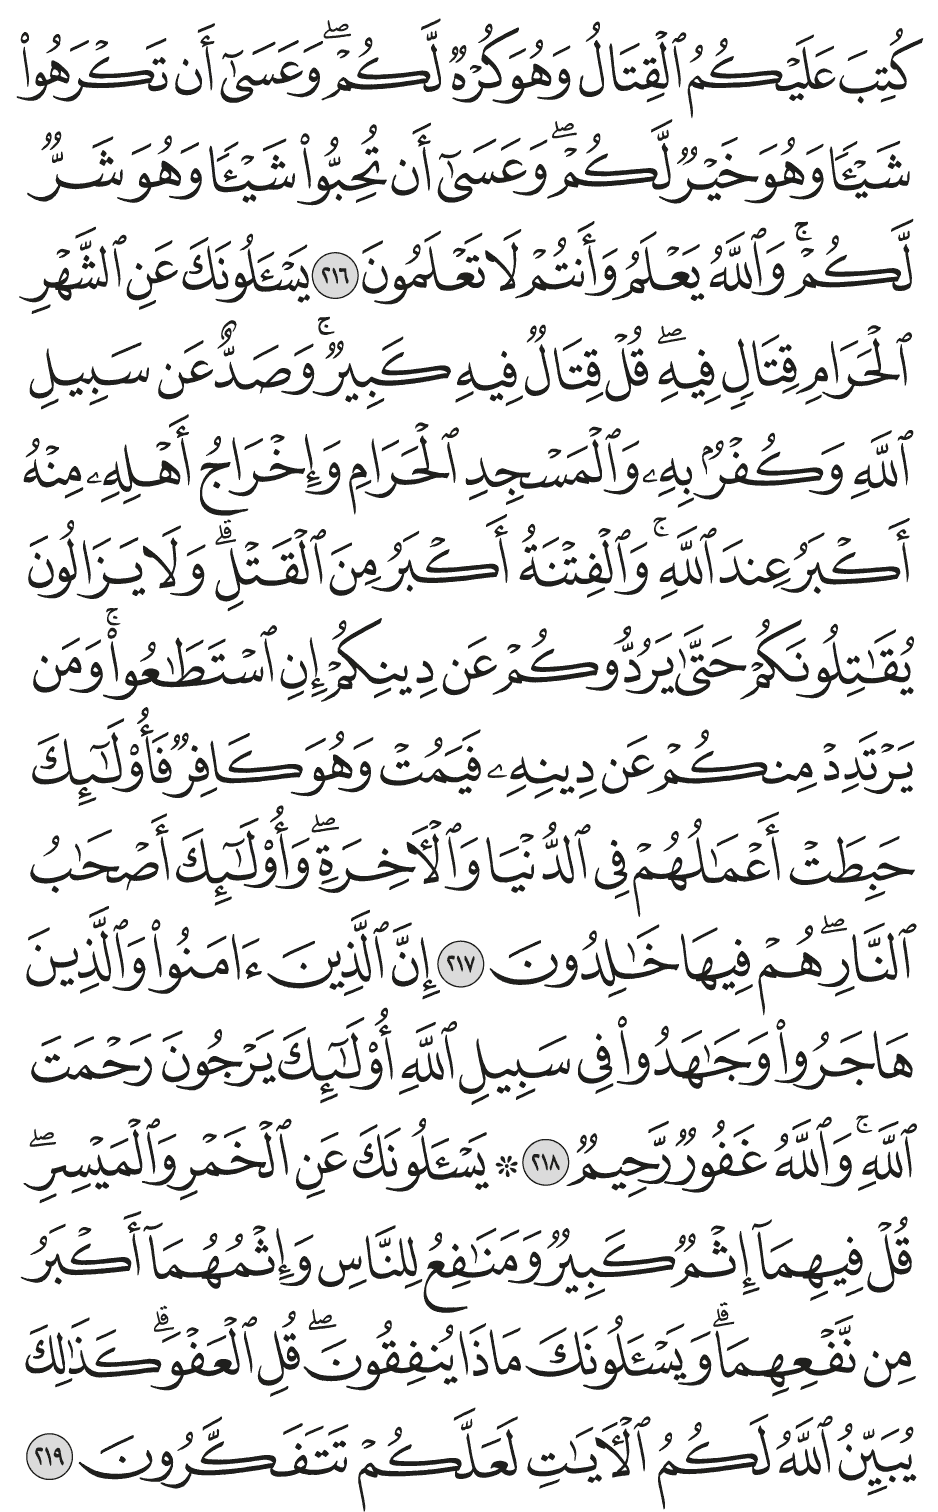 كُتِبَ عَلَيۡكُمُ ٱلۡقِتَالُ وَهُوَ كُرۡهٞ لَّكُمۡۖ وَعَسَىٰٓ أَن تَكۡرَهُواْ
شَيۡـٔٗا وَهُوَ خَيۡرٞ لَّكُمۡۖ وَعَسَىٰٓ أَن تُحِبُّواْ شَيۡـٔٗا وَهُوَ شَرّٞ
لَّكُمۡۚ وَٱللَّهُ يَعۡلَمُ وَأَنتُمۡ لَا تَعۡلَمُونَ ٢١٦ يَسۡـَٔلُونَكَ عَنِ ٱلشَّهۡرِ
ٱلۡحَرَامِ قِتَالٖ فِيهِۖ قُلۡ قِتَالٞ فِيهِ كَبِيرٞۚ وَصَدٌّ عَن سَبِيلِ
ٱللَّهِ وَكُفۡرُۢ بِهِۦ وَٱلۡمَسۡجِدِ ٱلۡحَرَامِ وَإِخۡرَاجُ أَهۡلِهِۦ مِنۡهُ
أَكۡبَرُ عِندَ ٱللَّهِۚ وَٱلۡفِتۡنَةُ أَكۡبَرُ مِنَ ٱلۡقَتۡلِۗ وَلَا يَزَالُونَ
يُقَٰتِلُونَكُمۡ حَتَّىٰ يَرُدُّوكُمۡ عَن دِينِكُمۡ إِنِ ٱسۡتَطَٰعُواْۚ وَمَن
يَرۡتَدِدۡ مِنكُمۡ عَن دِينِهِۦ فَيَمُتۡ وَهُوَ كَافِرٞ فَأُوْلَٰٓئِكَ
حَبِطَتۡ أَعۡمَٰلُهُمۡ فِي ٱلدُّنۡيَا وَٱلۡأٓخِرَةِۖ وَأُوْلَٰٓئِكَ أَصۡحَٰبُ
ٱلنَّارِۖ هُمۡ فِيهَا خَٰلِدُونَ ٢١٧ إِنَّ ٱلَّذِينَ ءَامَنُواْ وَٱلَّذِينَ
هَاجَرُواْ وَجَٰهَدُواْ فِي سَبِيلِ ٱللَّهِ أُوْلَٰٓئِكَ يَرۡجُونَ رَحۡمَتَ
ٱللَّهِۚ وَٱللَّهُ غَفُورٞ رَّحِيمٞ ٢١٨ ۞ يَسۡـَٔلُونَكَ عَنِ ٱلۡخَمۡرِ وَٱلۡمَيۡسِرِۖ
قُلۡ فِيهِمَآ إِثۡمٞ كَبِيرٞ وَمَنَٰفِعُ لِلنَّاسِ وَإِثۡمُهُمَآ أَكۡبَرُ
مِن نَّفۡعِهِمَاۗ وَيَسۡـَٔلُونَكَ مَاذَا يُنفِقُونَۖ قُلِ ٱلۡعَفۡوَۗ كَذَٰلِكَ
يُبَيِّنُ ٱللَّهُ لَكُمُ ٱلۡأٓيَٰتِ لَعَلَّكُمۡ تَتَفَكَّرُونَ ٢١٩